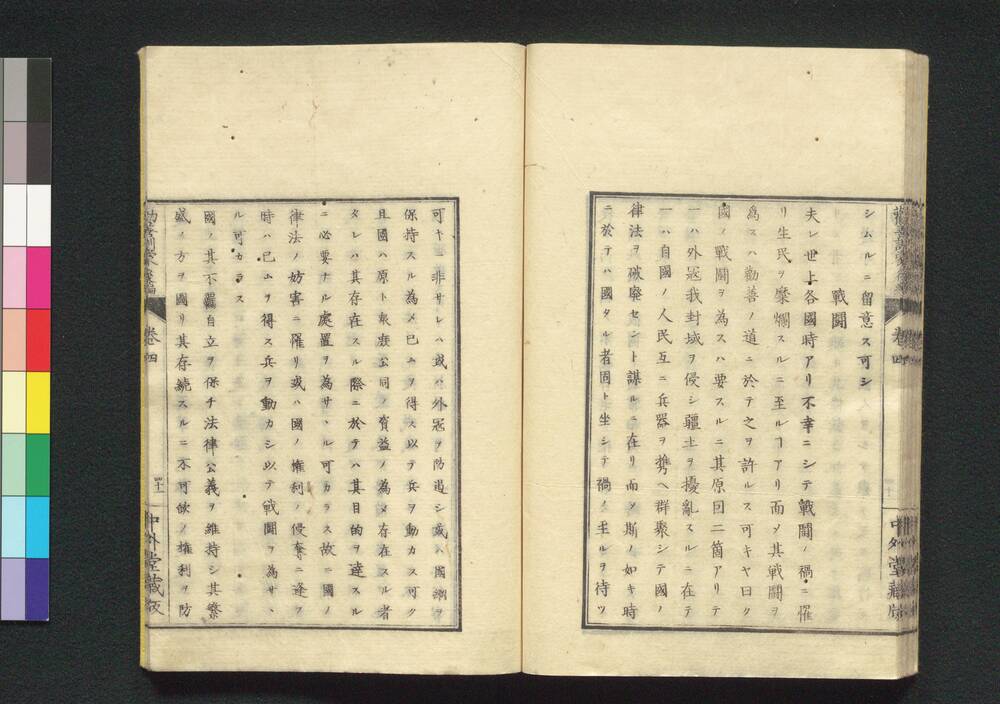 シムルニ留意ス可シ
戰鬪
夫レ世上各國時アリ不幸ニシテ戰鬪ノ禍ニ罹
リ生民ヲ糜爛スルニ至ルヿアリ而ソ其戰鬪ヲ
為スハ勸善ノ道ニ於テ之ヲ許ルス可キヤ曰ク
國ノ戰鬪ヲ為スハ要スルニ其原因二箇アリテ
一ハ外冦我封域ヲ侵シ疆土ヲ擾亂スルニ在テ
一ハ自國ノ人民互ニ兵器ヲ携ヘ群聚シテ國ノ
律法ヲ破廢セント謀ルニ在リ而ソ斯ノ如キ時
ニ於テハ國タル者固ト坐シテ禍ノ至ルヲ待ツ
卷四
中外堂藏版
可キニ非サレハ或ハ外冦ヲ防遏シ或ハ國網ヲ
保持スル為メ已ムヲ得ス以テ兵ヲ動カス可ク
且國ハ原ト衆庶公同ノ資益ノ為メ存在スル者
タレハ其存在スル際ニ於テハ其目的ヲ達スル
ニ必要ナル處置ヲ為サヽル可カラス故ニ國ノ
律法ノ妨害ニ罹リ或ハ國ノ權利ノ侵奪ニ逢フ
時ハ已ムヲ得ス兵ヲ動カシ以テ戰鬪ヲ為サヽ
ル可カラス
國ノ其不羈自立ヲ保チ法律公義ヲ維持シ其繁
盛ノ方ヲ圖リ其存續スルニ不可缺ノ權利ヲ防
卷四
四十一
中外堂藏版